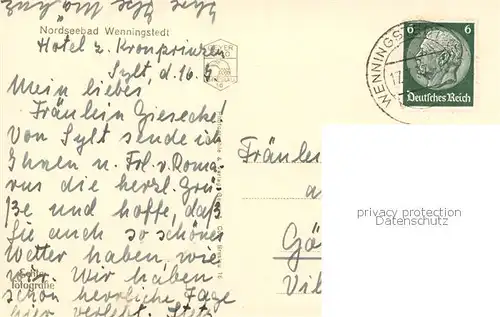 Nordseebad Wenningstedt
Hotel z. Kronprinzen
Sylt, d. 16.
Mein liebes
Fräulein Giesecke!
Von Sylt sende ich
Ihnen u. Frl. v. Roma-
rus die herzl. Grü-
ße und hoffe, daß
Sie auch so schönes
Wetter haben, wie
wir. Wir haben
schon herrliche Tage
hier verlebt. Stets
Echte
Fotografie
WENNINGST
17.
6 6
Deutsches Reich
Fräulein
a
Gö
Vi
privacy protection
Datenschutz